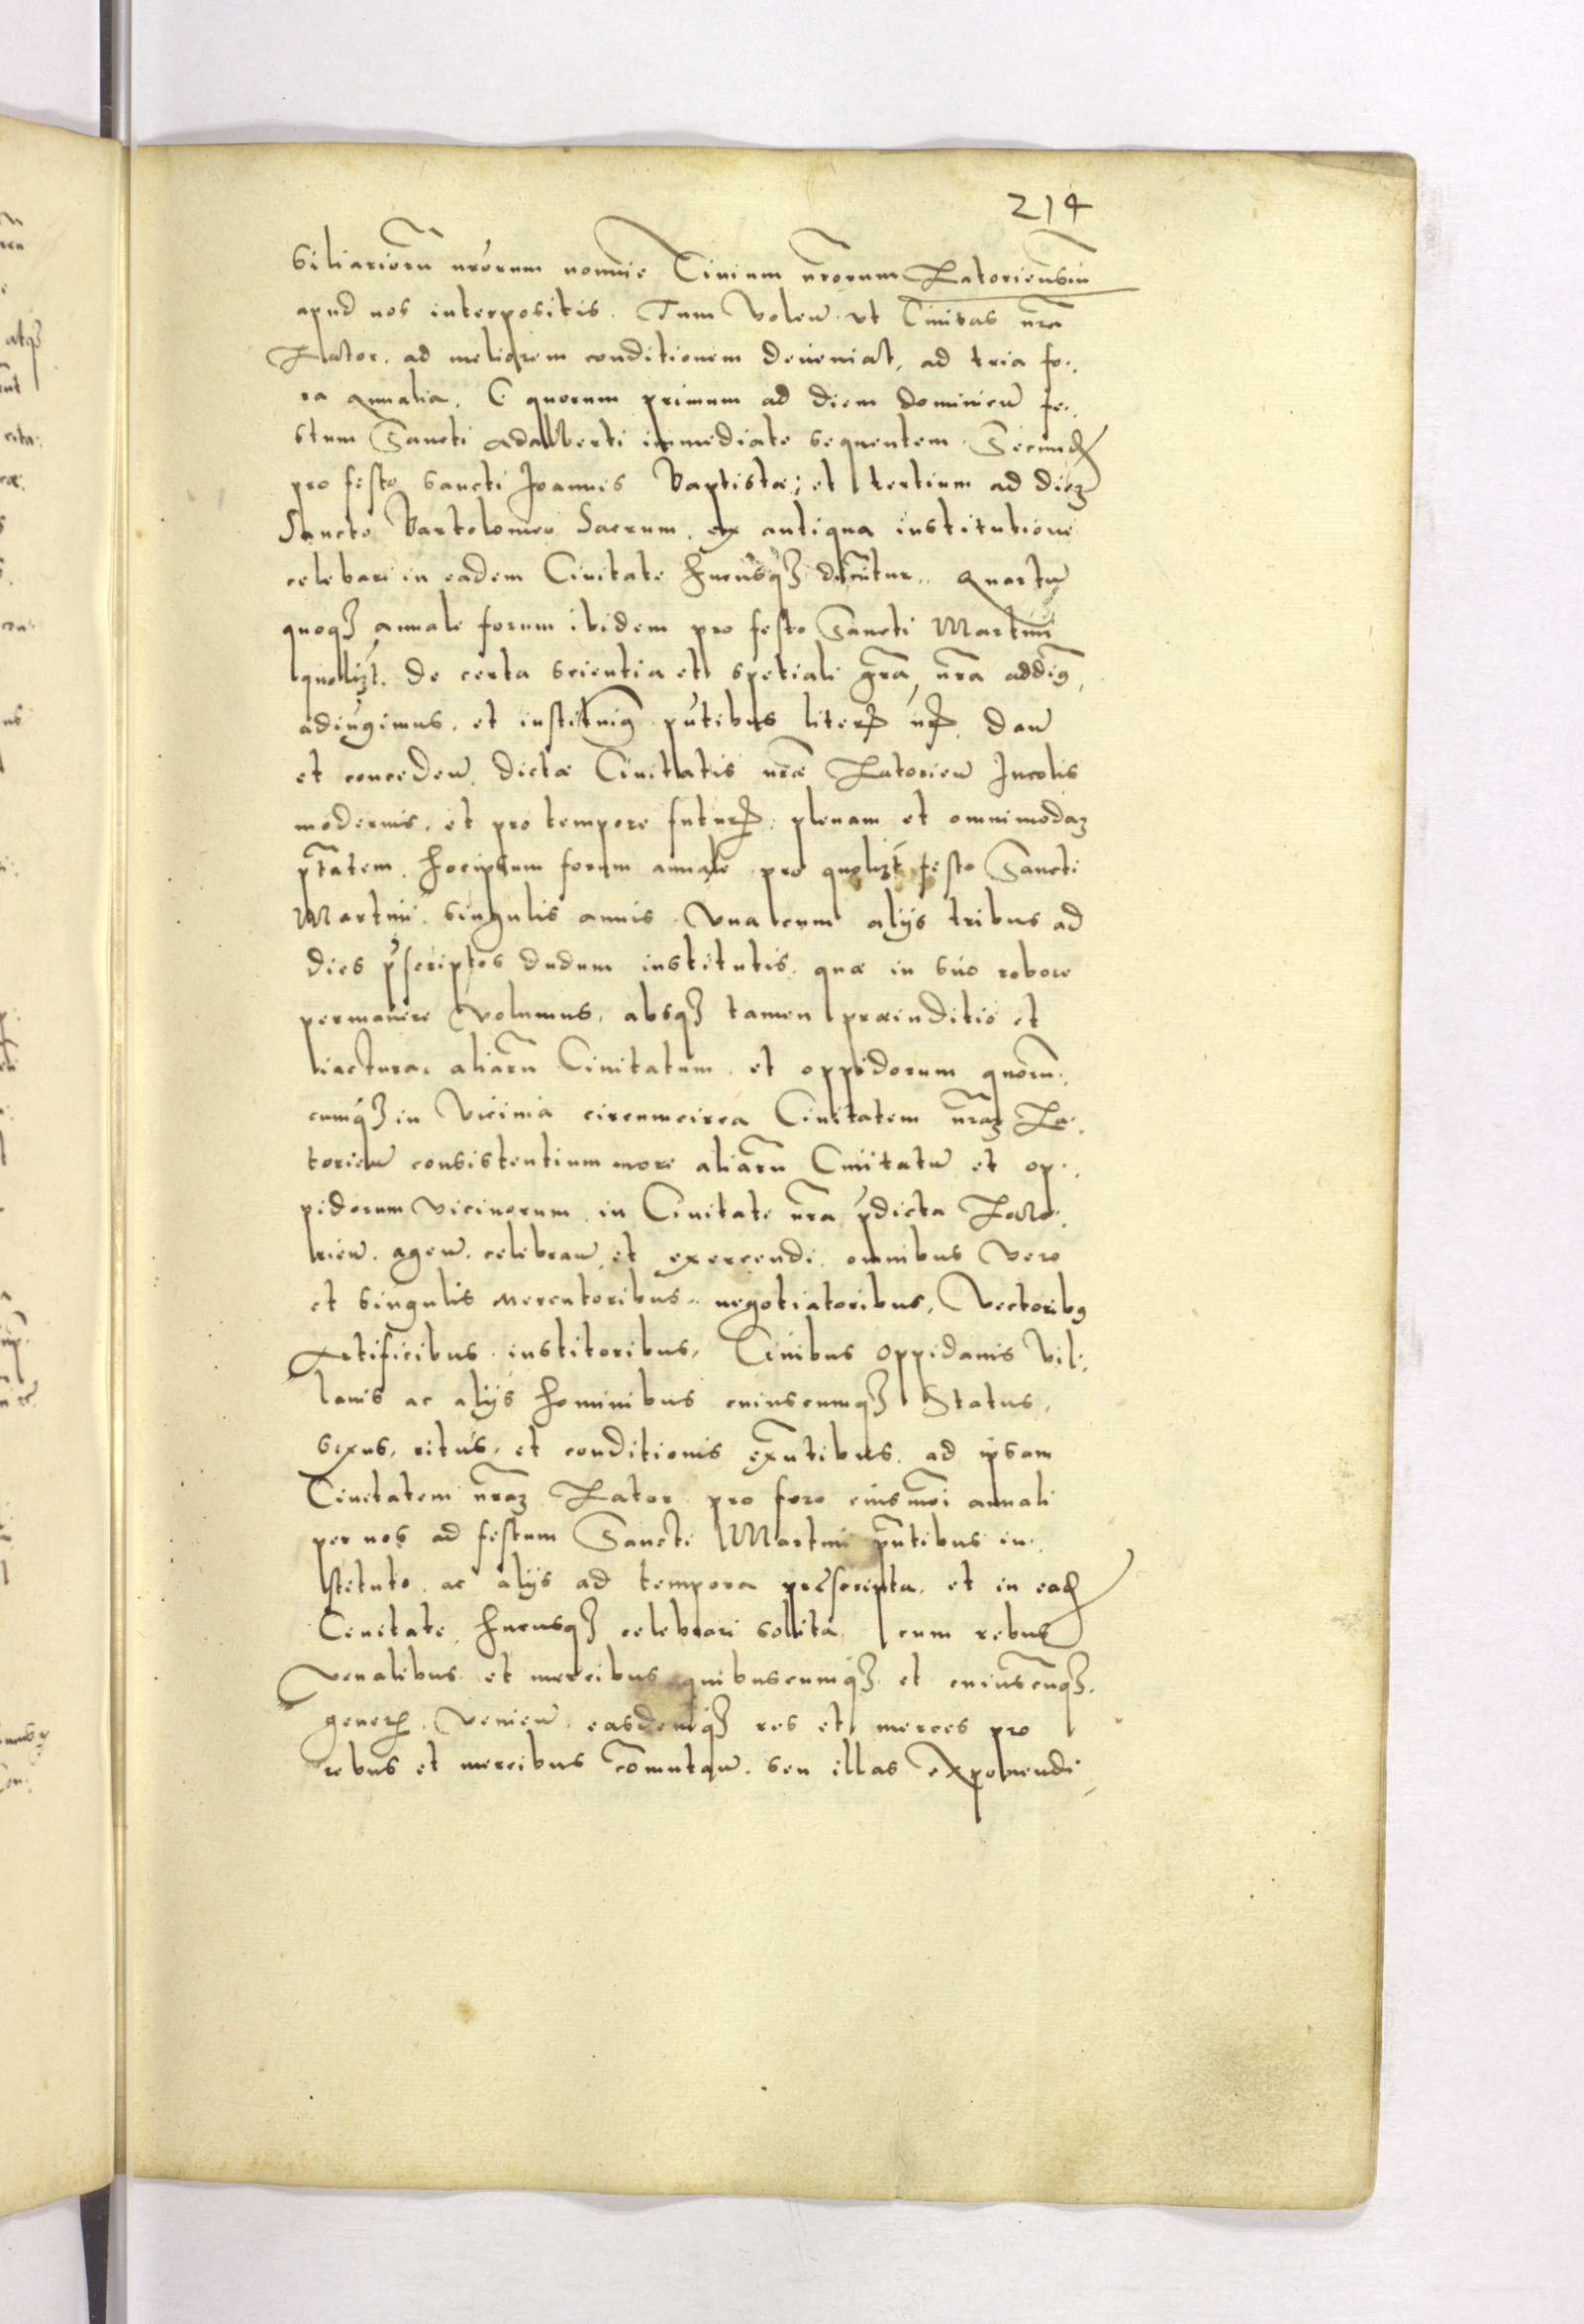 214
siliariorũ nr̃orum nomine Civium nr̃orum Zatoriensiũ
apud nos interpositis. Tum volen̄ ut Civitas nr̃a
Zator. ad meliorem conditionem deveniat, ad tria fo:,
ra annalia. E quorum primum ad diem dominicū fe:,
stum Sancti Adalberti immediate sequentem Secund̄
pro festo sancti Joannis Baptistæ; et tertium ad diez
Sancto Bartolomeo Sacrum, ex antiqua institutione
celebari in eadem Civitate hucusqꝫ dicũtur,, Quartū
quoqꝫ annale forum ibidem pro festo Sancti Martini
quolizt. de certa scientia et spetiali gr̃a, nr̃a addim9,
adiũgimus, et instituim9 pñtibus literꝭ nrꝭ. dan̄
et conceden̄. dictæ Civitatis nr̃æ Zatorien̄ Incolis
modernis, et pro tempore futurꝭ: plenam et omnimodaz
ptãtem. hocipsum forum annale pro quolizt festo Sancti
Martini singulis annis una cum alijs tribus ad
dies p̃scriptos dudum institutis. quæ in suo robore
permanere volumus, absqꝫ tamen præiuditio et
iactura, aliarũ Civitatum, et oppidorum quorũ:,
cumqꝫ in vicinia circumcirca Civitatem nr̃az Za:,
torien̄ consistentium more aliarũ Civitatū et op:,
pidorum vicinorum in Civitate nr̃a p̃dicta Zato:,
rien̄. agen̄. celebran̄ et exercendi. omnibus vero
et singulis mercatoribus,, negotiatoribus, Vectorib9
Artificibus institoribus, Civibus oppidanis vil:,
lanis ac alijs hominibus cuiuscumqꝫ Status,
sexus, ritus, et conditionis ex̃ntibus. ad ipsam
Civitatem nr̃az Zator pro foro eiusmõi annali
per nos ad festum Sancti Martini pñtibus in:,
stituto. ac alijs ad tempora præscripta, et in ead̄
Civitate, hucusqꝫ celebrari sollita, cum rebus
venalibus et mercibus quibuscumqꝫ et cuiuscũqꝫ.
generꝭ. venien̄. easdemqꝫ res et merces pro
rebus et mercibus com̃utan̄. seu illas exponendi,